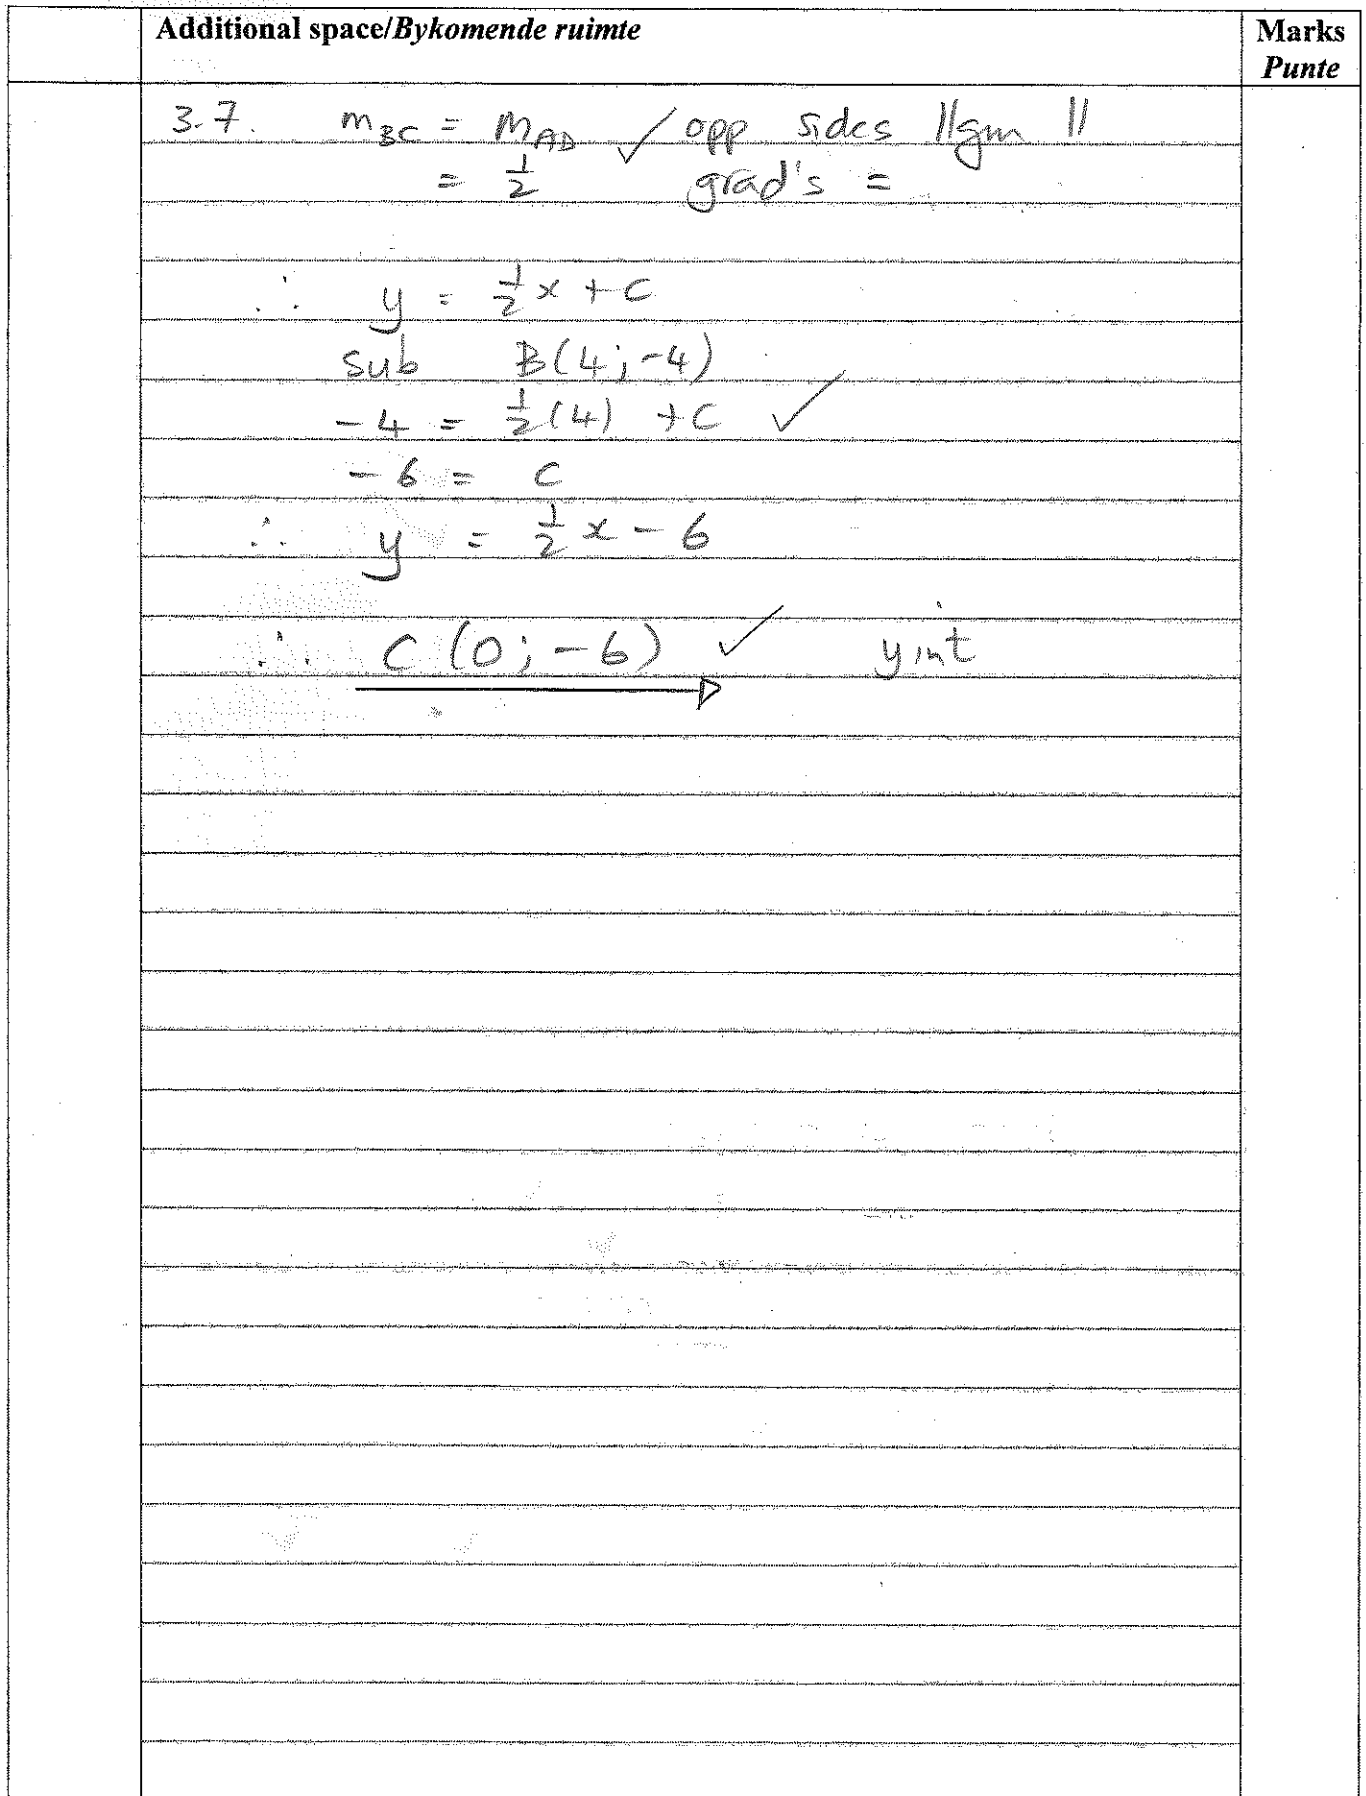 Additional space/Bykomende ruimte
Marks
Punte
3.7. m_BC = m_AD ✓ opp sides ||gm ||
= 1/2 grad's =
∴ y = 1/2 x + c
sub B(4;-4)
-4 = 1/2(4) + c ✓
-6 = c
∴ y = 1/2 x - 6
∴ C(0;-6) ✓ y int